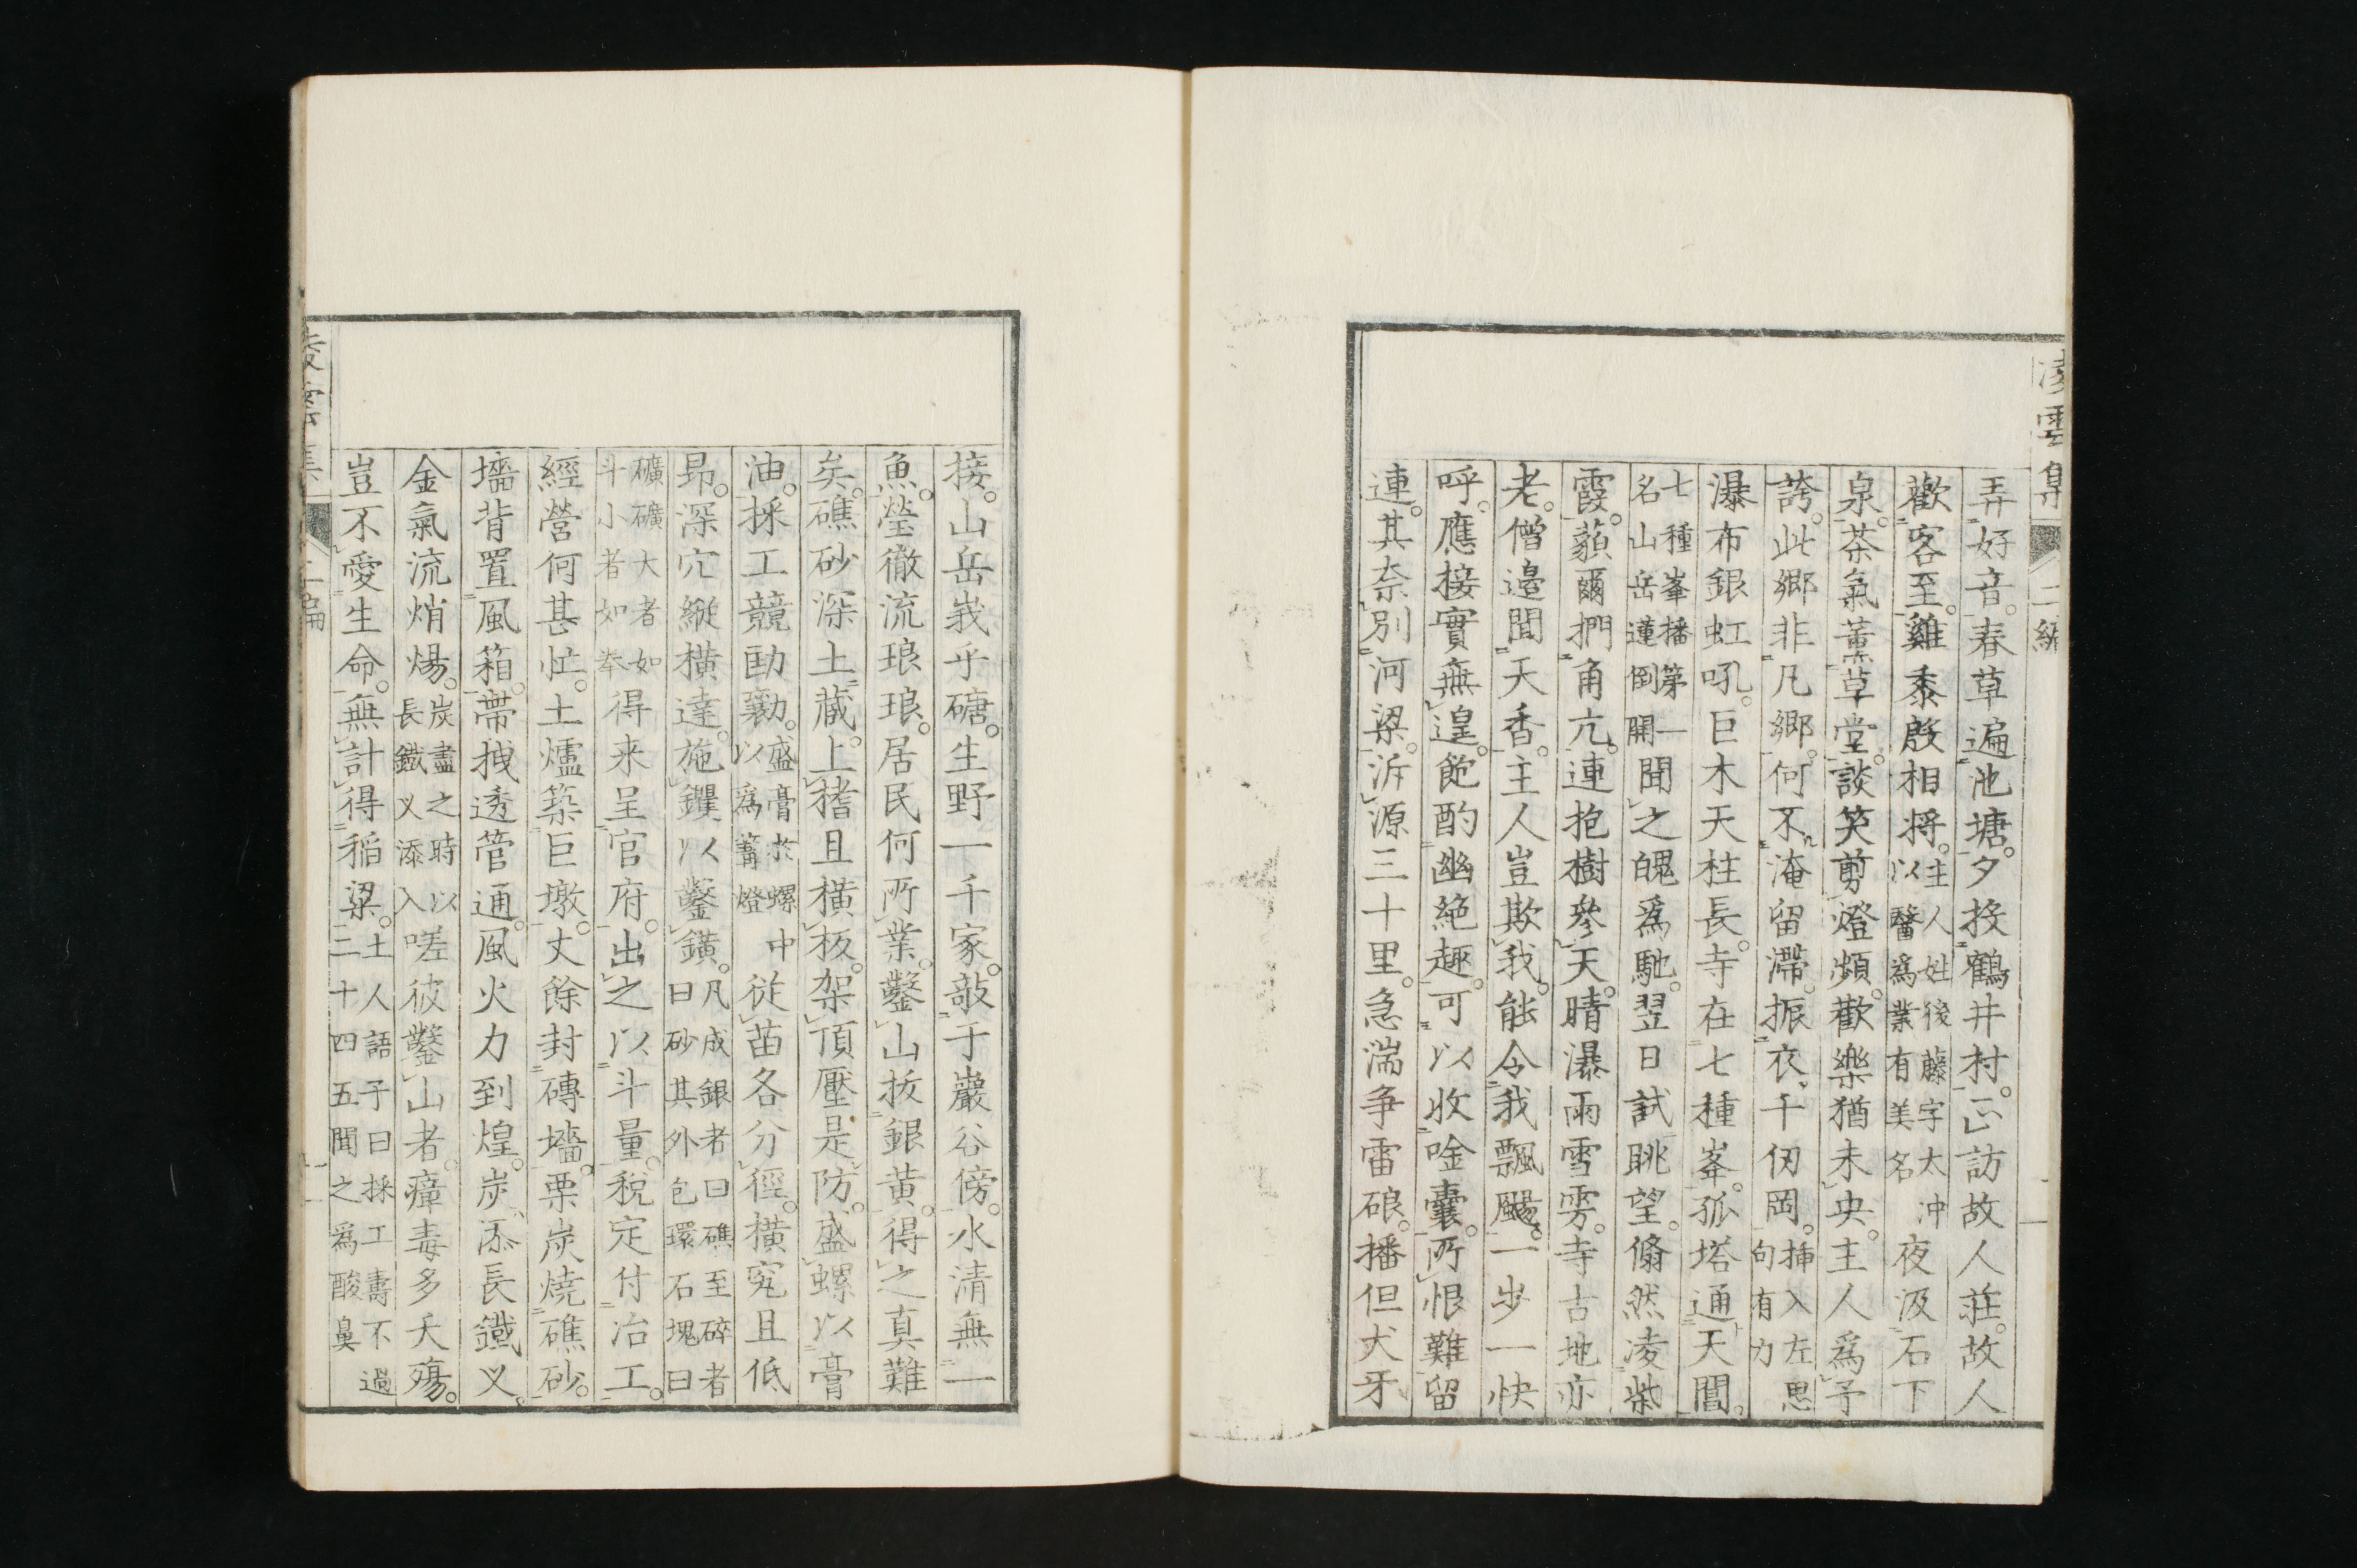 凌雲集 二編
弄好音。春草遍池塘。夕投鶴井村。云訪故人莊。故人
歡客至。雞黍殷相將。主人姓後藤字大冲以醫爲業有美名夜汲石下
泉。茶氣薰草堂。談笑剪燈頻。歡樂猶未央。主人爲予
誇。此鄉非凡鄉。何不淹留滯。振衣千仞岡。挿入左思句有力
瀑布銀虹吼。巨木天柱長。寺在七種峯。孤塔通天閶。
七種峯播第一名山岳蓮倒開聞之魄爲馳。翌日試眺望。翛然凌紫
霞。蘋爾捫角亢。連抱樹參天。晴瀑雨雪雱。寺古地亦
老。僧邊聞天香。主人豈欺我。能令我飄颺。一步一快
呼。應接實無遑。飽酌幽絶趣。可以收唫囊。所恨難留
連。其奈別河梁。泝源三十里。急湍爭雷硠。播但犬牙
接。山岳峩乎磄。生野一千家。敲于巖谷傍。水清無一
魚。瑩徹流琅琅。居民何所業。鑿山拔銀黃。得之真難
矣。礁砂深土藏。上揩且橫板。架頂壓是防。盛螺以膏
油。採工競劻勷。盛膏於螺中以爲篝燈從苗各分徑。橫究且低
昻。深穴縱橫達。施钁以鑿鐄。凡成銀者曰礁至碎者曰砂其外包環石塊曰
礦礦大者如斗小者如拳得来呈官府。出之以斗量。税定付冶工。
經營何甚忙。土爐築巨墩。丈餘封磚墻。栗炭燒礁砂。
墻背置風箱。帶拽透管通。風火力到煌。炭添長鐵义。
金氣流焇煬。炭盡之時以長鐵义添入嗟彼鑿山者。瘴毒多夭殤。
豈不愛生命。無計得稻粱。土人語予曰採工壽不過二十四五聞之爲酸鼻
二編